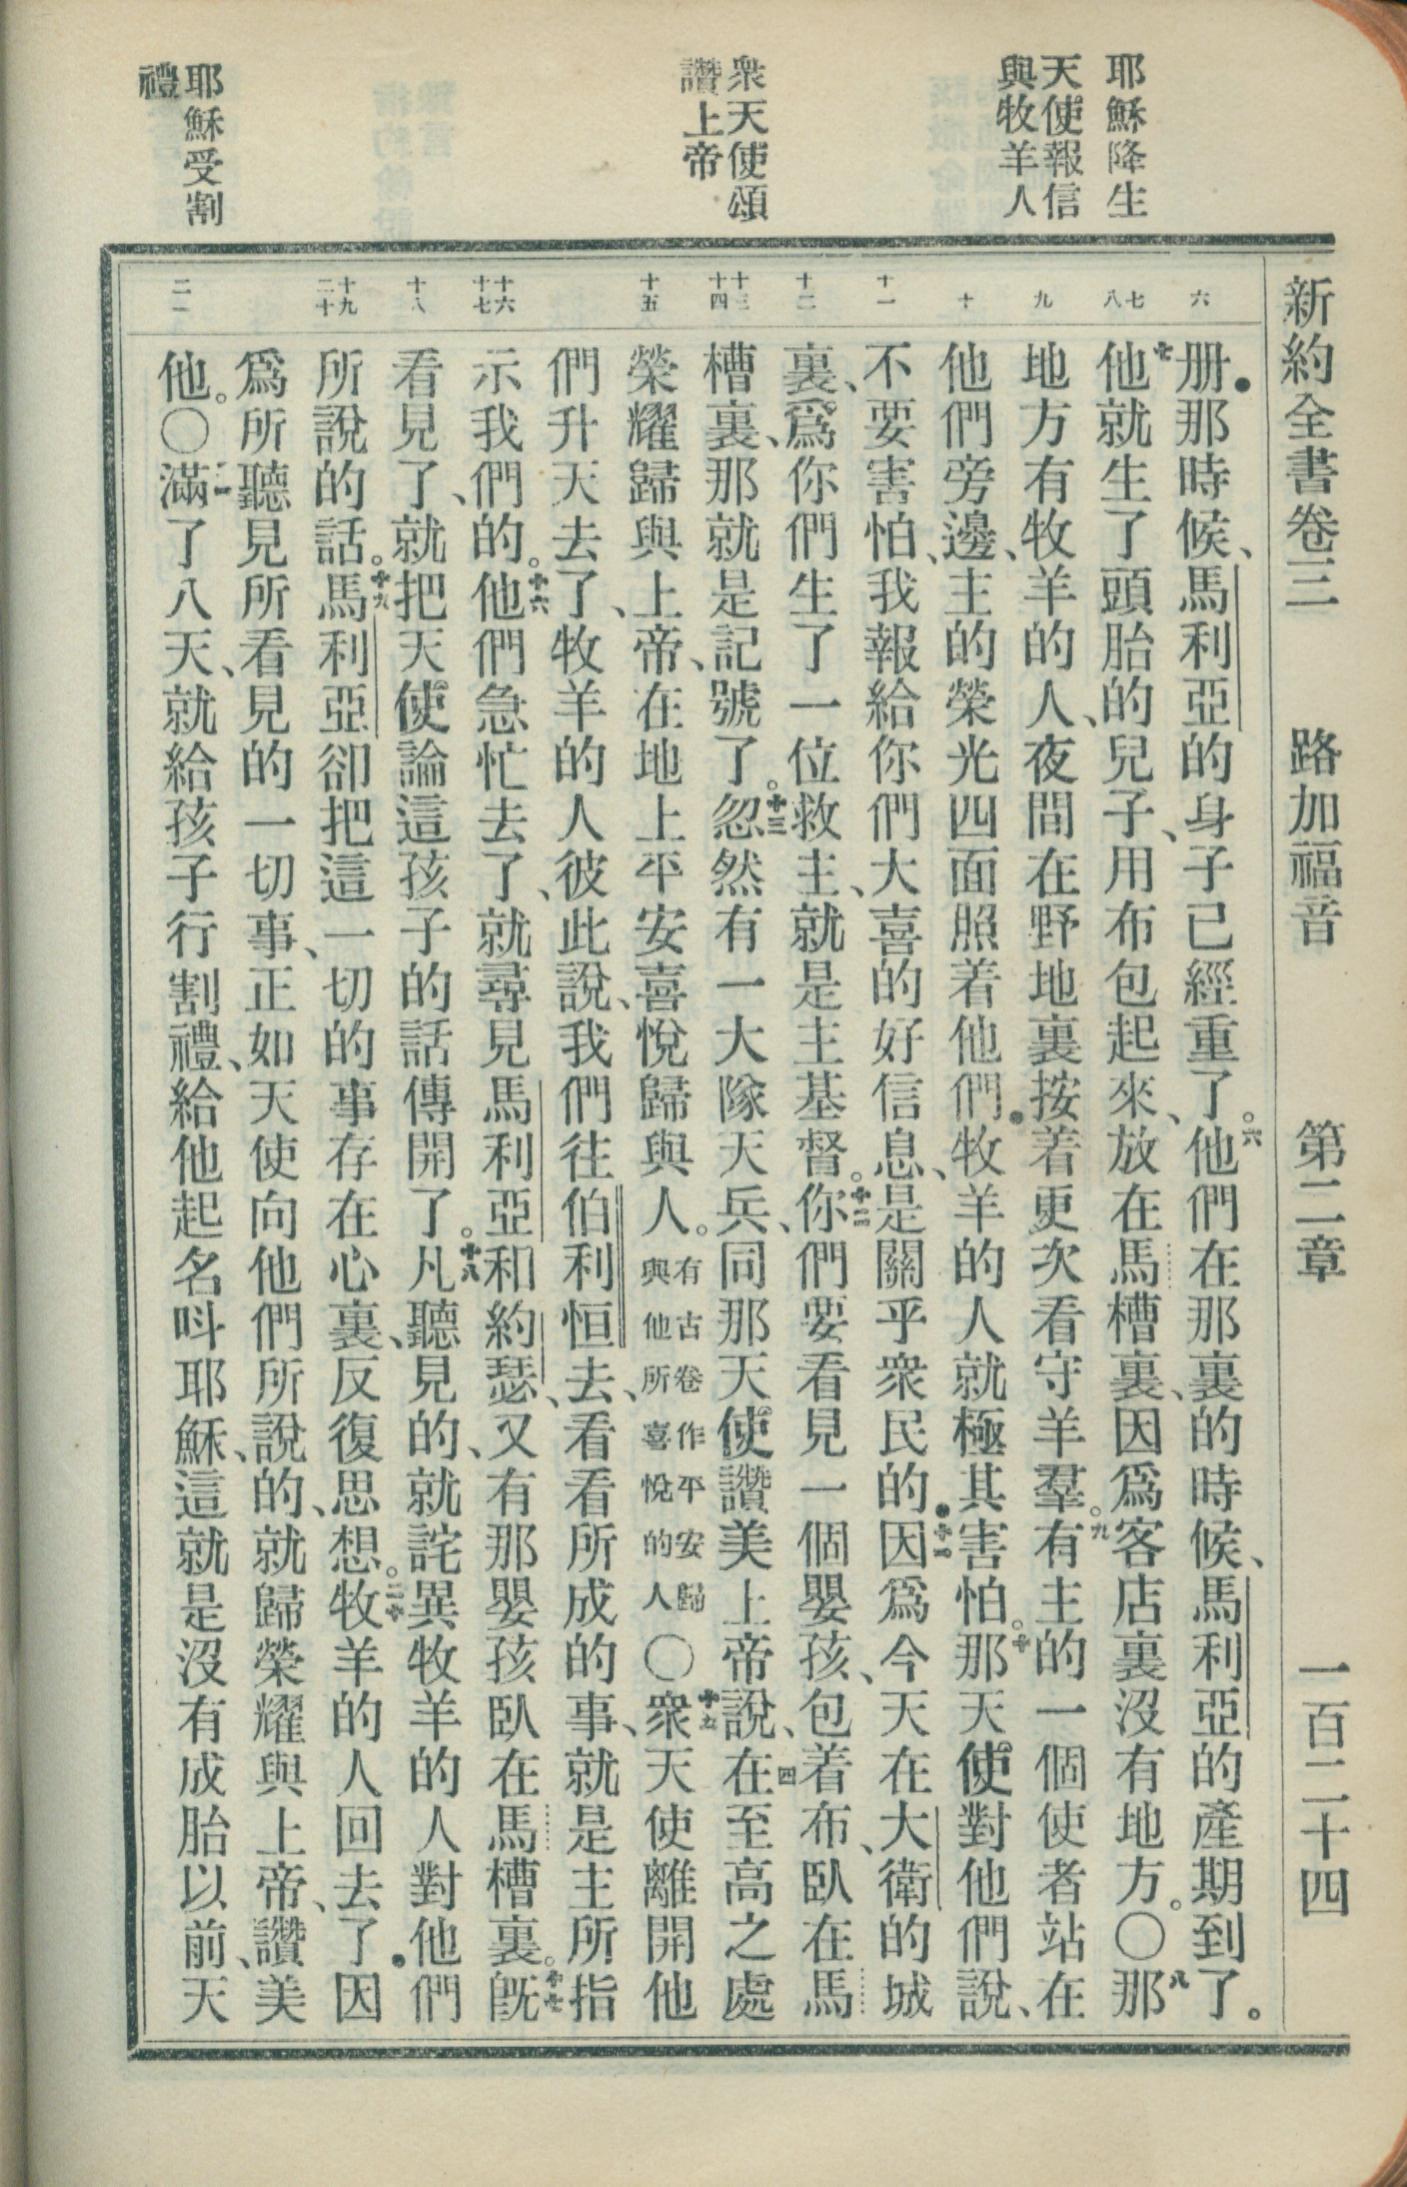 新約全書卷三　路加福音　第二章　一百二十四
耶穌降生
天使報信
與牧羊人
衆天使頌
讚上帝
耶穌受割
禮
六
七
八
九
十
十一
十二
十三
十四
十五
十六
十七
十八
十九
二十
二一
册．那時候、馬利亞的身子已經重了。六他們在那裏的時候、馬利亞的產期到了。
七他就生了頭胎的兒子、用布包起來、放在馬槽裏、因爲客店裏沒有地方。〇八那
地方有牧羊的人、夜間在野地裏按着更次看守羊羣。九有主的一個使者站在
他們旁邊、主的榮光四面照着他們．牧羊的人就極其害怕。十那天使對他們說、
不要害怕、我報給你們大喜的好信息、是關乎衆民的．十一因爲今天在大衛的城
裏、爲你們生了一位救主、就是主基督。十二你們要看見一個嬰孩、包着布、臥在馬
槽裏、那就是記號了。十三忽然有一大隊天兵、同那天使讚美上帝說、十四在至高之處
榮耀歸與上帝、在地上平安喜悅歸與人。有古卷作平安歸與他所喜悅的人〇十五衆天使離開他
們升天去了、牧羊的人彼此說、我們往伯利恒去、看看所成的事、就是主所指
示我們的。十六他們急忙去了、就尋見馬利亞和約瑟、又有那嬰孩臥在馬槽裏。十七旣
看見了、就把天使論這孩子的話傳開了。十八凡聽見的、就詫異牧羊的人對他們
所說的話。十九馬利亞卻把這一切的事存在心裏、反復思想。二十牧羊的人回去了．因
爲所聽見所看見的一切事、正如天使向他們所說的、就歸榮耀與上帝、讚美
他。〇二一滿了八天、就給孩子行割禮、給他起名呌耶穌、這就是沒有成胎以前、天